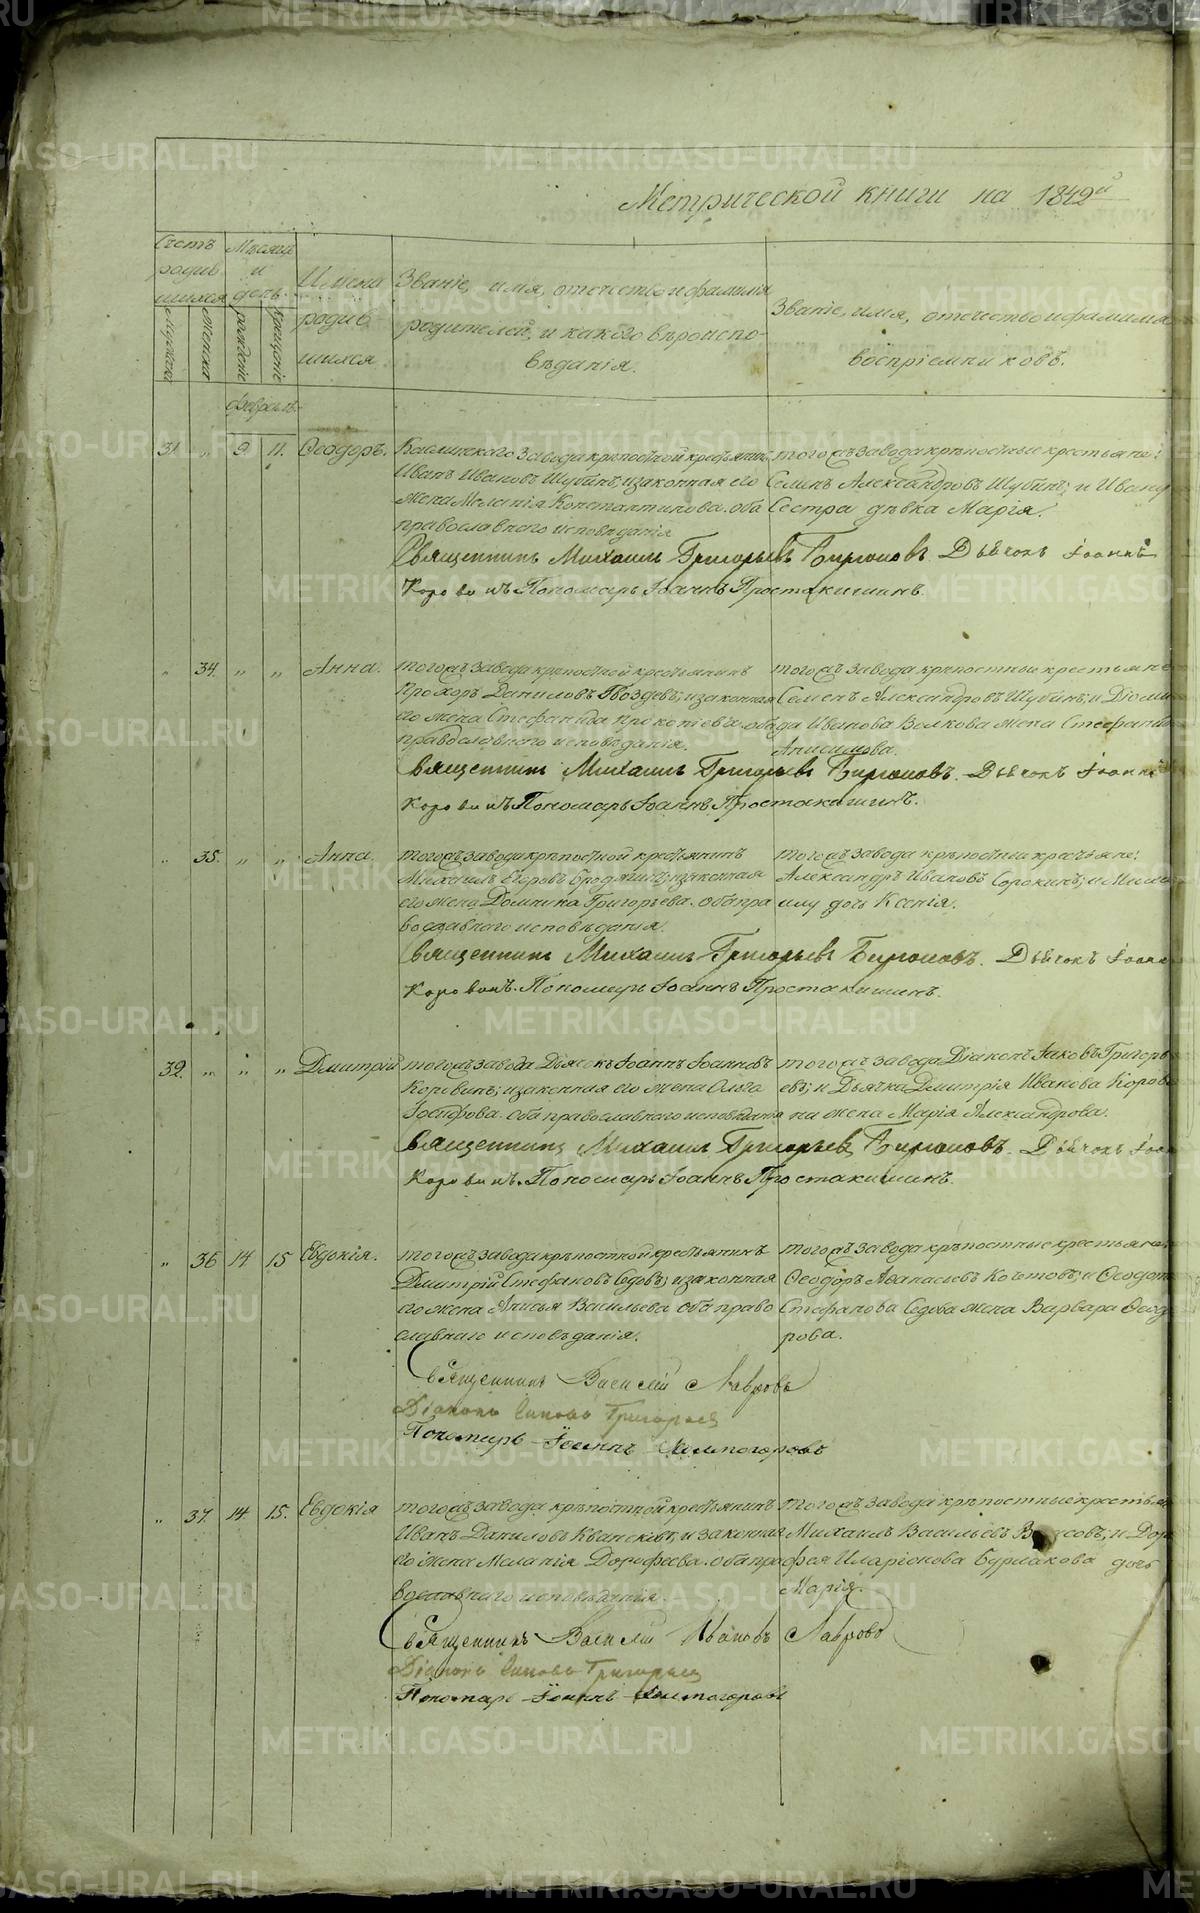 Метрической книги на 1842й
Счетъ родив шихся
Мѣсяцъ и день.
Имена родив шихся
Званіе, имя, отечество и фамилія
родителей, и какого вѣроиспо-
вѣданія.
Званіе, имя, отечество и фамилія
воспріемниковъ.
Мужеска
Женска
рожденіе
крещеніе
февраль
31 „ 9 11. Ѳеодоръ.
Каслинскаго завода крѣпостной крестьянинъ
Иванъ Ивановъ Шубинъ, и законная его
жена Меланія Константинова. оба
православнаго исповѣданія
тогожъ завода крѣпостные крестьяне:
Семенъ Александровъ Шубинъ; и Ивана
Сестра дѣвка Марія.
Священникъ Михаилъ Григорьевъ Бирюковъ. Дьячокъ Іоаннъ
Коровинъ Пономарь Іоаннъ Простакишинъ.
„ 34. „ „ Анна.
тогожъ завода крѣпостной крестьянинъ
Прохоръ Даниловъ Гвоздевъ; и законная
его жена Стефанида Прокопіева оба
православнаго исповѣданія.
тогожъ завода крѣпостные крестьяне
Семенъ Александровъ Шубинъ; и Діоми
да Иванова Волкова жена Стефанида
Анисимова.
Священникъ Михаилъ Григорьевъ Бирюковъ. Дьячокъ Іоаннъ
Коровинъ Пономарь Іоаннъ Простакишинъ.
„ 35. „ „ Анна.
тогожъ завода крѣпостной крестьянинъ
Михаилъ Егоровъ Бродягинъ; и законная
его жена Домника Григорьева. оба пра
вославнаго исповѣданія.
тогожъ завода крѣпостные крестьяне:
Александръ Ивановъ Сорокинъ; и
дочь Ксенія.
Священникъ Михаилъ Григорьевъ Бирюковъ. Дьячокъ Іоаннъ
Коровинъ. Пономарь Іоаннъ Простакишинъ.
32. „ „ „ Дмитрій
тогожъ завода Дьячекъ Іоаннъ Іоанновъ
Коровинъ; и законная его жена Ольга
Іосифова. оба православнаго исповѣданія
тогожъ завода Діаконъ Іаковъ Григорь
евъ; и Дьячка Дмитрія Иванова Корови
на жена Марія Александрова.
Священникъ Михаилъ Григорьевъ Бирюковъ. Дьячокъ Іоан
Коровинъ. Пономарь Іоаннъ Простакишинъ.
„ 36 14 15 Евдокія.
тогожъ завода крѣпостной крестьянинъ
Дмитрій Стефановъ Седовъ; и законная
его жена Анисья Васильева оба право
славнаго исповѣданія.
тогожъ завода крѣпостные крестьяне:
Ѳеодоръ Аѳанасьевъ Кочетовъ; и Ѳеодота
Стефанова Седова жена Варвара Ѳеодо
рова.
Священникъ Василій Лавровъ
Діаконъ Іаковъ Григорьевъ
Пономарь Іоаннъ Холмогоровъ
„ 37. 14 15. Евдокія
тогожъ завода крѣпостной крестьянинъ
Иванъ Даниловъ и законная
его жена Меланія Дорофеева. оба пра
вославнаго исповѣданія.
тогожъ завода крѣпостные крестьяне
Михаилъ Васильевъ и Доро
фея Иларіонова Бурмакова дочь
Марія.
Священникъ Василій Ивановъ Лавровъ
Діаконъ Іаковъ Григорьевъ
Пономарь Іоаннъ Холмогоровъ
METRIKI.GASO-URAL.RU